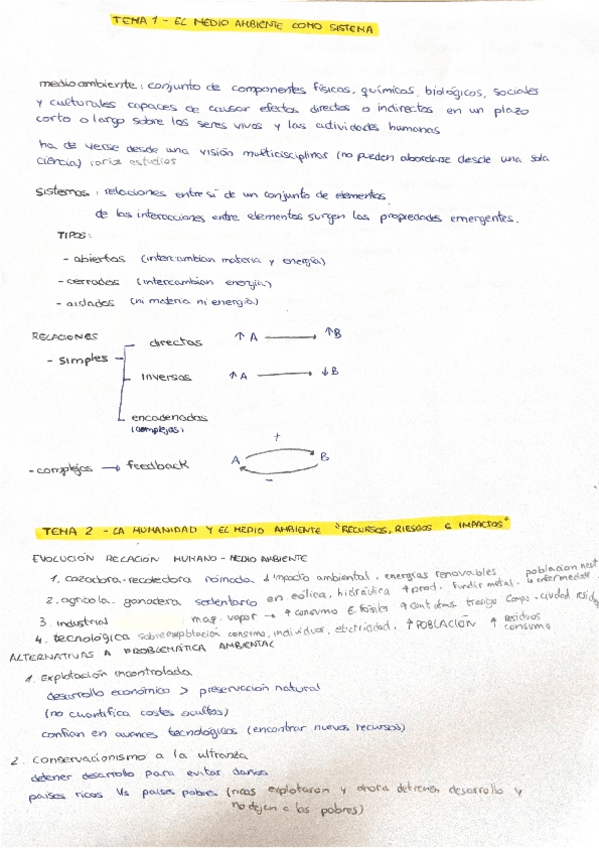 TEMA 1 - EL MEDIO AMBIENTE COMO SISTEMA
medio ambiente: conjunto de componentes físicos, químicos, biológicos, sociales
y culturales capaces de causar efectos directos o indirectos en un plazo
corto o largo sobre los seres vivos y las actividades humanas
ha de verse desde una visión multidisciplinar (no pueden abordarse desde una sola
ciencia) varios estudios
sistemas: relaciones entre sí de un conjunto de elementos.
de las interacciones entre elementos surgen las propiedades emergentes.
TIPOS:
- abiertos (intercambian materia y energía)
- cerrados (intercambian energía)
- aislados (ni materia ni energía)
RELACIONES
- simples
directas ↑A → ↑B
inversas ↑A → ↓B
encadenadas
(complejas)
- complejas → feedback A + B -
TEMA 2 - LA HUMANIDAD Y EL MEDIO AMBIENTE "RECURSOS, RIESGOS E IMPACTOS"
EVOLUCIÓN RELACIÓN HUMANO - MEDIO AMBIENTE
1. cazadora-recolectora nómada ↓ impacto ambiental, energías renovables población
2. agrícola-ganadera sedentario en eólica, hidráulica ↑prod. fundir metal
3. industrial maq. vapor → ↑ consumo E fósiles ↑ cont atms. trasiego campo-ciudad resid
4. tecnológica sobreexplotación consumo, individuos, electricidad, ↑ POBLACIÓN ↑ residuos consumo
ALTERNATIVAS A PROBLEMÁTICA AMBIENTAL
1. Explotación incontrolada
desarrollo económico > preservación natural
(no cuantifica costes ocultos)
confían en avances tecnológicos (encontrar nuevos recursos)
2. conservacionismo a la ultranza
detener desarrollo para evitar daños
países ricos Vs países pobres (ricos explotaron y ahora detienen desarrollo y
no dejan a los pobres)